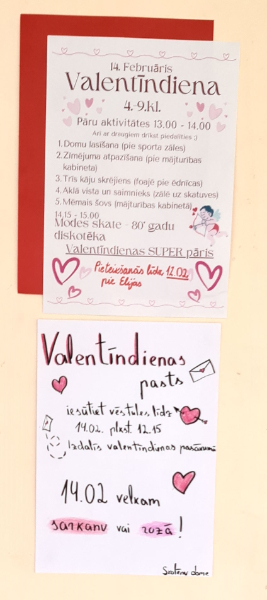 14. Februāris
Valentīndiena
4.-9.kl.
Pāru aktivitātes 13.00 - 14.00
Arī ar draugiem drīkst piedalīties :)
1. Domu lasīšana (pie sporta zāles)
2. Zīmējuma atpazīšana (pie mājturības
kabineta)
3. Trīs kāju skrējiens (foajē pie ēdnīcas)
4. Aklā vista un saimnieks (zālē uz skatuves)
5. Mēmais šovs (mājturības kabinetā)
14.15 - 15.00
Modes skate - 80' gadu
diskotēka
Valentīndienas SUPER pāris
Pieteikšanās līdz 11.02.
pie Elijas
Valentīndienas
pasts
iesūtiet vēstules līdz
14.02. plkst 12.15
Izdalīs valentīndienas pasākumā
14.02 velkam
sarkanu vai rozā!